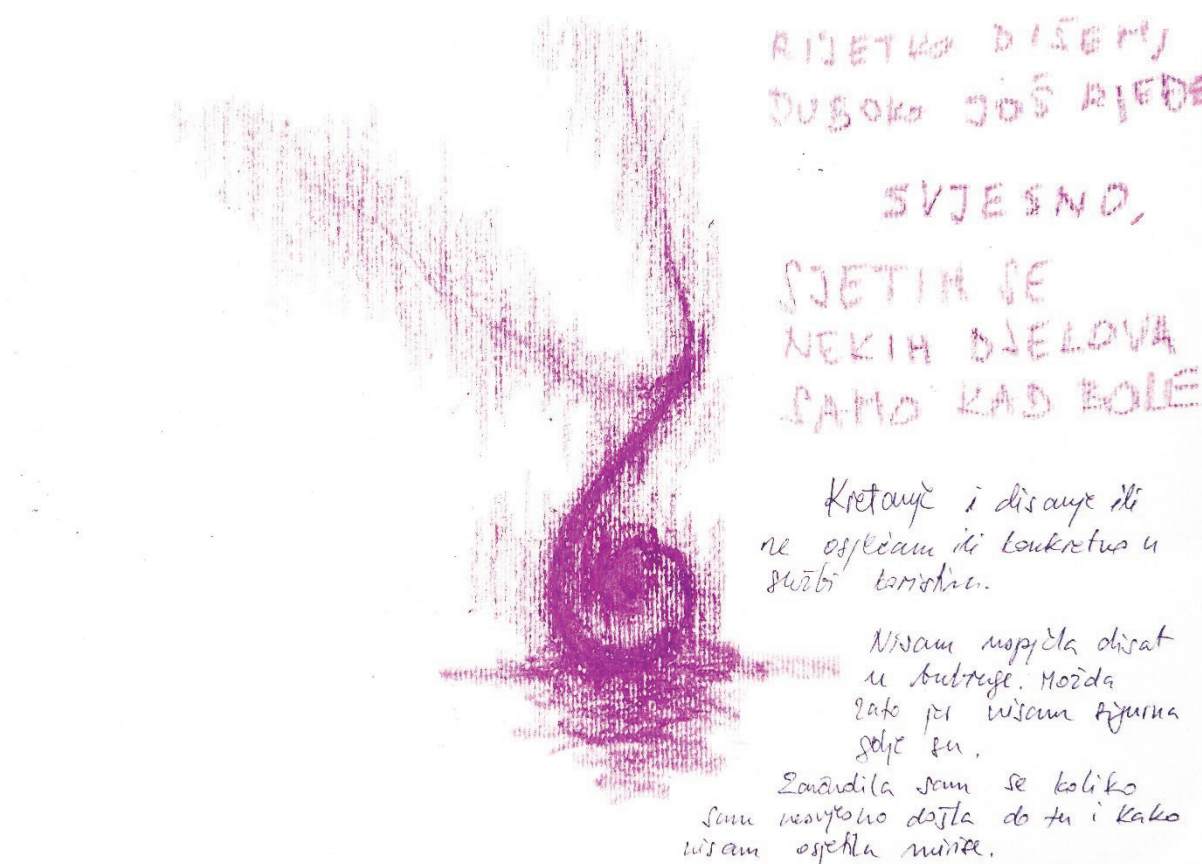 RIJETKO DIŠEM,
DUBOKO JOŠ RJEĐE
SVJESNO,
SJETIM SE
NEKIH DJELOVA
SAMO KAD BOLE
Kretanje i disanje ili
ne osjećam ili konkretno u
službi koristim.
Nisam uspjela disat
u bubrege. Možda
zato jer nisam sigurna
gdje su.
Začudila sam se koliko
sam nesvjesno došla do tu i kako
nisam osjetila mirise.